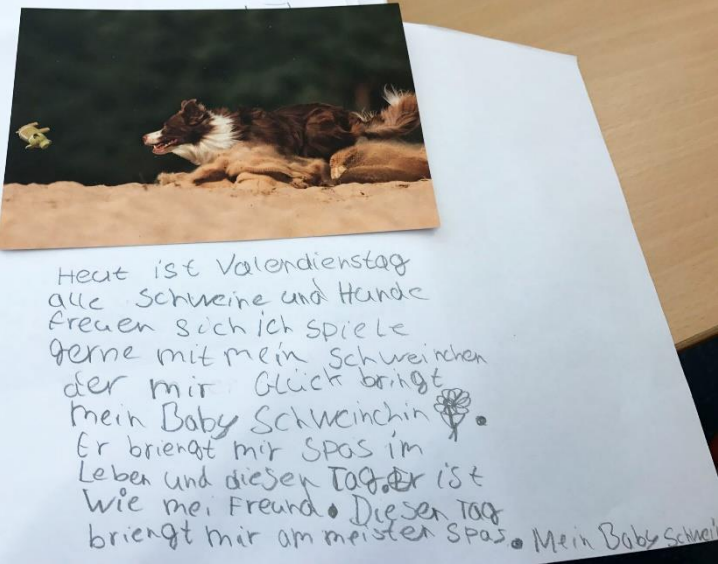 Heut ist Valendienstag
alle Schweine und Hunde
freuen sich ich spiele
gerne mit mein Schweinchen
der mir Glück bringt
mein Baby Schweinchin .
Er briengt mir Spas im
Leben und diesen Tag. Er ist
wie mei Freund. Diesen Tag
briengt mir am meisten Spas. Mein Baby Schwei